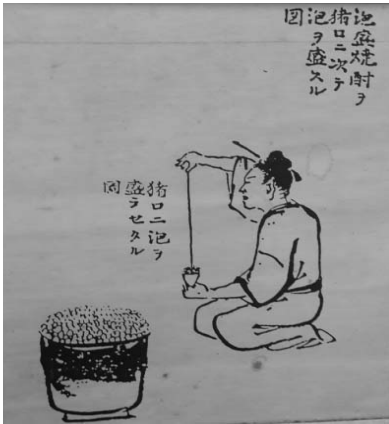 泡盛焼酎ヲ
猪口ニ次テ
泡ヲ盛スル
図
猪口ニ泡ヲ
盛ラセタル
図